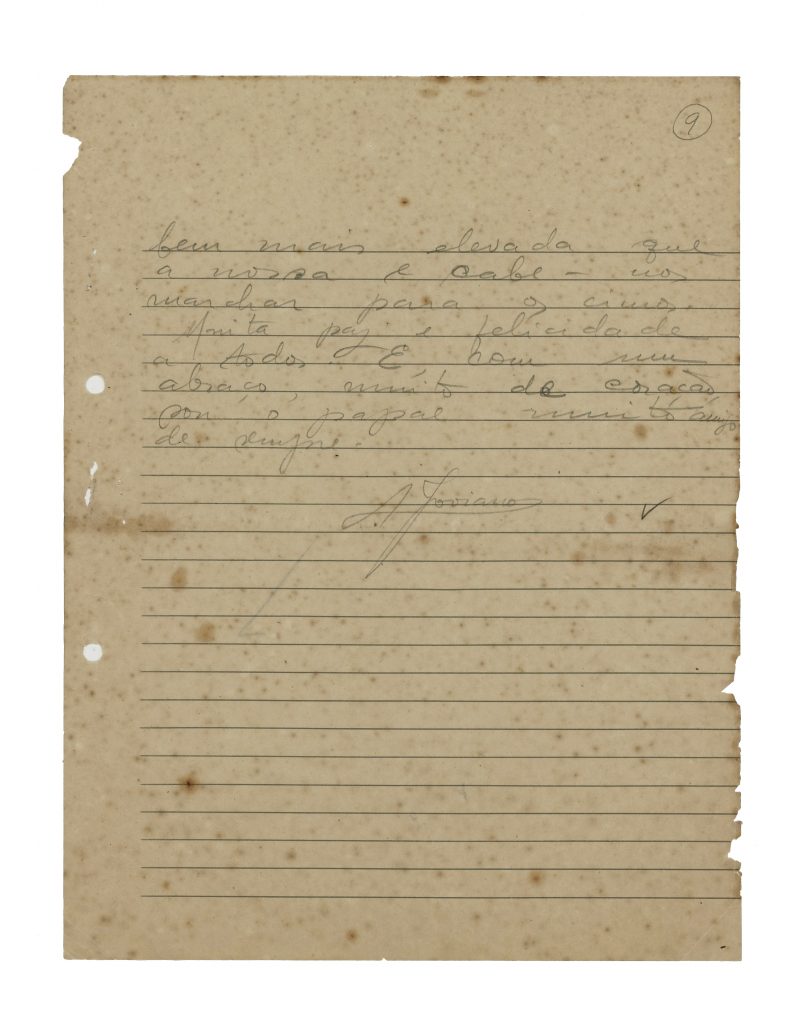 9
bem mais elevada que
a nossa e cabe-nos
marchar para os cimos.
Muita paz e felicidade
a todos. E, com um
abraço, muito de coração,
sou o papae muito amigo
de sempre.
A. Joviano